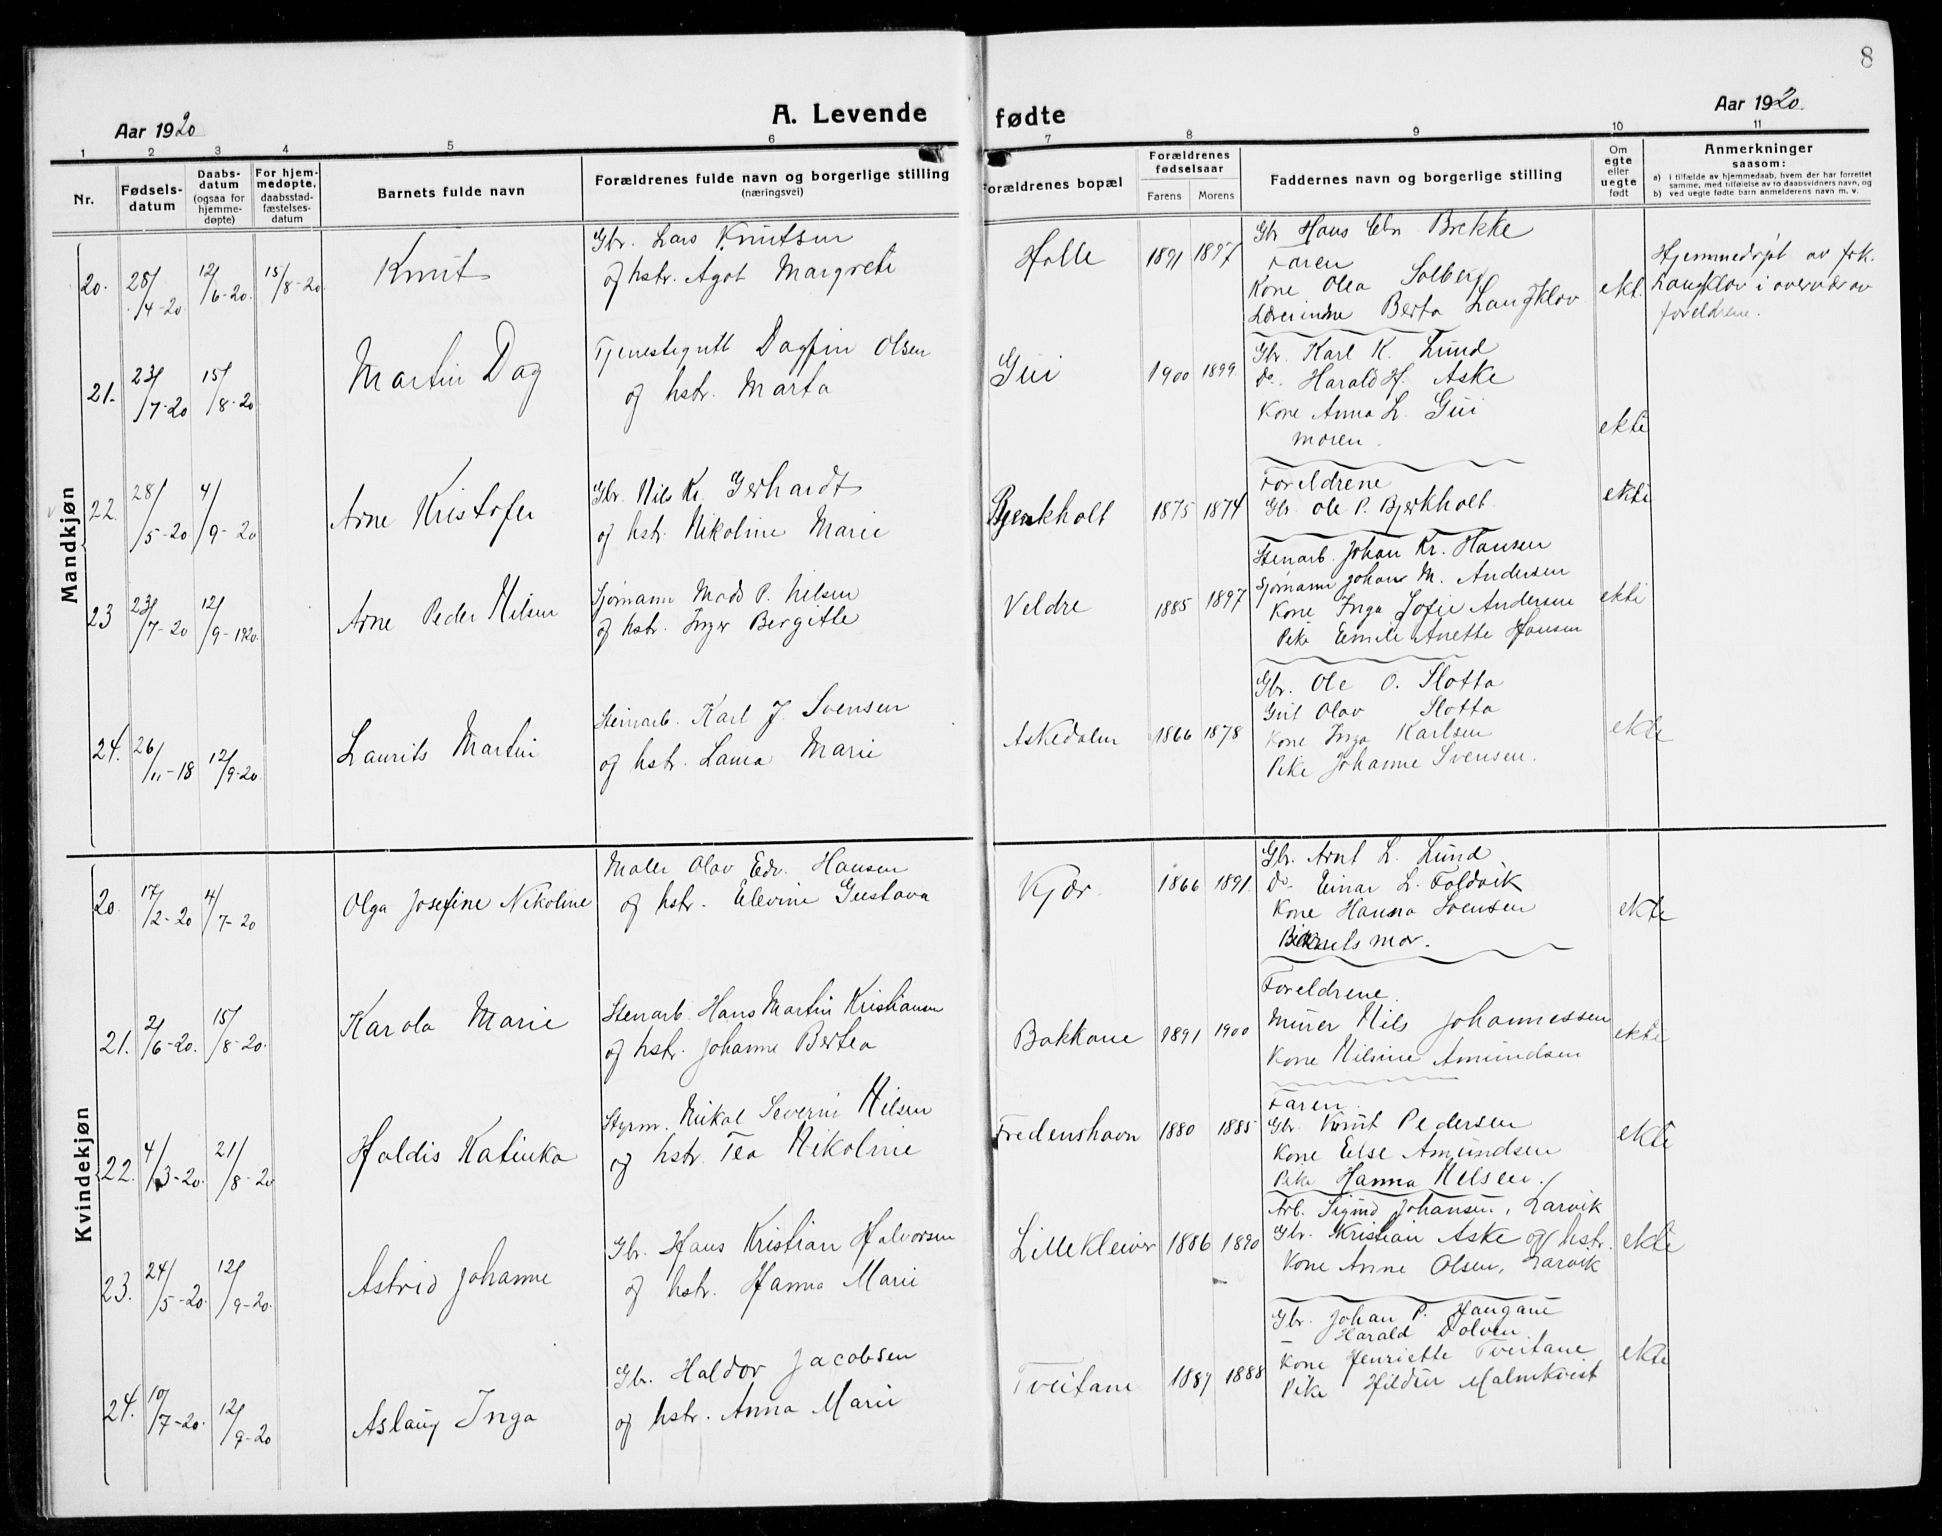 8
Aar 1920
A. Levende fødte
Aar 1920.
1 2 3 4 5 6 7 8 9 10 11
Nr.
Fødsels-
datum
Daabs-
datum
(ogsaa for
hjemme-
døpte)
For hjem-
medøpte.
daabsstad-
fæstelses-
datum
Barnets fulde navn
Forældrenes fulde navn og borgerlige stilling
(næringsvei)
Forældrenes bopæl
Forældrenes
fødselsaar
Farens Morens
Faddernes navn og borgerlige stilling
Om
egte
eller
uegte
født
Anmerkninger
saasom:
a) i tilfælde av hjemmedaab, hvem der har forrettet
samme, med tilføielse av to daabsvidners navn, og
b) ved uegte fødte barn anmelderens navn m. v.
Mandkjøn
20. 28/4-20 12/6-20. 15/8-20. Knut
Gbr. Lars Knutsen
og hstr. Agot Margrete
Holle 1891 1897
Gbr Hans Chr. Brekke
Faren
Kone Olea Solberg
Lærerinne Berta Langklov
ekt.
Hjemmedøpt av frk.
Langklov i overvær av
foreldrene.
21. 23/7-20 15/8-20 Martin Dag
Tjenestegutt Dagfin Olsen
og hstr. Marta
Gui 1900 1899
Gbr. Karl K. Lund
Do. Harald H. Aske
Kone Anna L. Gui
moren.
ekte
22. 28/5-20 4/9-20 Arne Kristofer
Gbr. Nils Kr. Gerhardt
og hstr. Nikoline Marie
Bjerkholt 1875 1874
Foreldrene
Gbr. Ole P. Bjerkholt.
ekte
23 23/7-20 12/9-1920. Arne Peder Nilsen
Sjømann Mads P. Nilsen
og hstr. Inger Bergitte
Veldre 1885 1897
Stenarb. Johan Kr. Hansen
Sjømann Johan M. Andersen
Kone Inga Sofie Andersen
Pike Emile Anette Hansen
ekte
24. 26/11-18 12/9-20 Laurits Martin
Steinarb. Karl J. Svensen
og hstr. Laura Marie
Askedalen 1866 1878
Gbr. Ole O. Slotta
Gut Olav Slotta
Kone Inga Karlsen
Pike Johanne Svensen.
ekte
Kvindekjøn
20. 17/2-20 4/7-20 Olga Josefine Nikoline
Maler Olav Edv. Hansen
og hstr. Elevine Gustava
Kjær. 1866 1891.
Gbr. Arnt L. Lund
Do- Einar L. Foldvik
Kone Hanna Svensen
Barnets mor.
ekte
21. 2/6-20. 15/8-20. Karola Marie
Stenarb. Hans Martin Kristiansen
og hstr. Johanne Bertea
Bakkane 1891 1900
Foreldrene.
Murer Nils Johannessen
Kone Nilsine Amundsen
ekte
22. 4/3-20. 21/8-20 Haldis Katinka
Styrm. Mikal Severin Nilsen
og hstr. Tea Nikoline
Fredenshavn 1880 1885
Faren.
Gbr. Knut Pedersen
Kone Else Amundsen
Pike Hanna Nilsen.
ekte
23. 24/5-20. 12/9-20. Astrid Johanne
Gbr. Hans Kristian Halvorsen
og hstr. Hanna Marie
Lille Kleiver 1886 1890
Arb. Sigurd Johansen, Larvik
Gbr. Kristian Aske og hstr.
Kone Anne Olsen, Larvik
ekte
24. 10/7-20. 12/9-20 Aslaug Inga
Gbr. Haldor Jacobsen
og hstr. Anna Marie
Tveitane 1887 1888
Gbr. Johan P. Haugane
Harald Dolven
Kone Henriette Tveitane
Pike Hildur Malmkvist
ekte